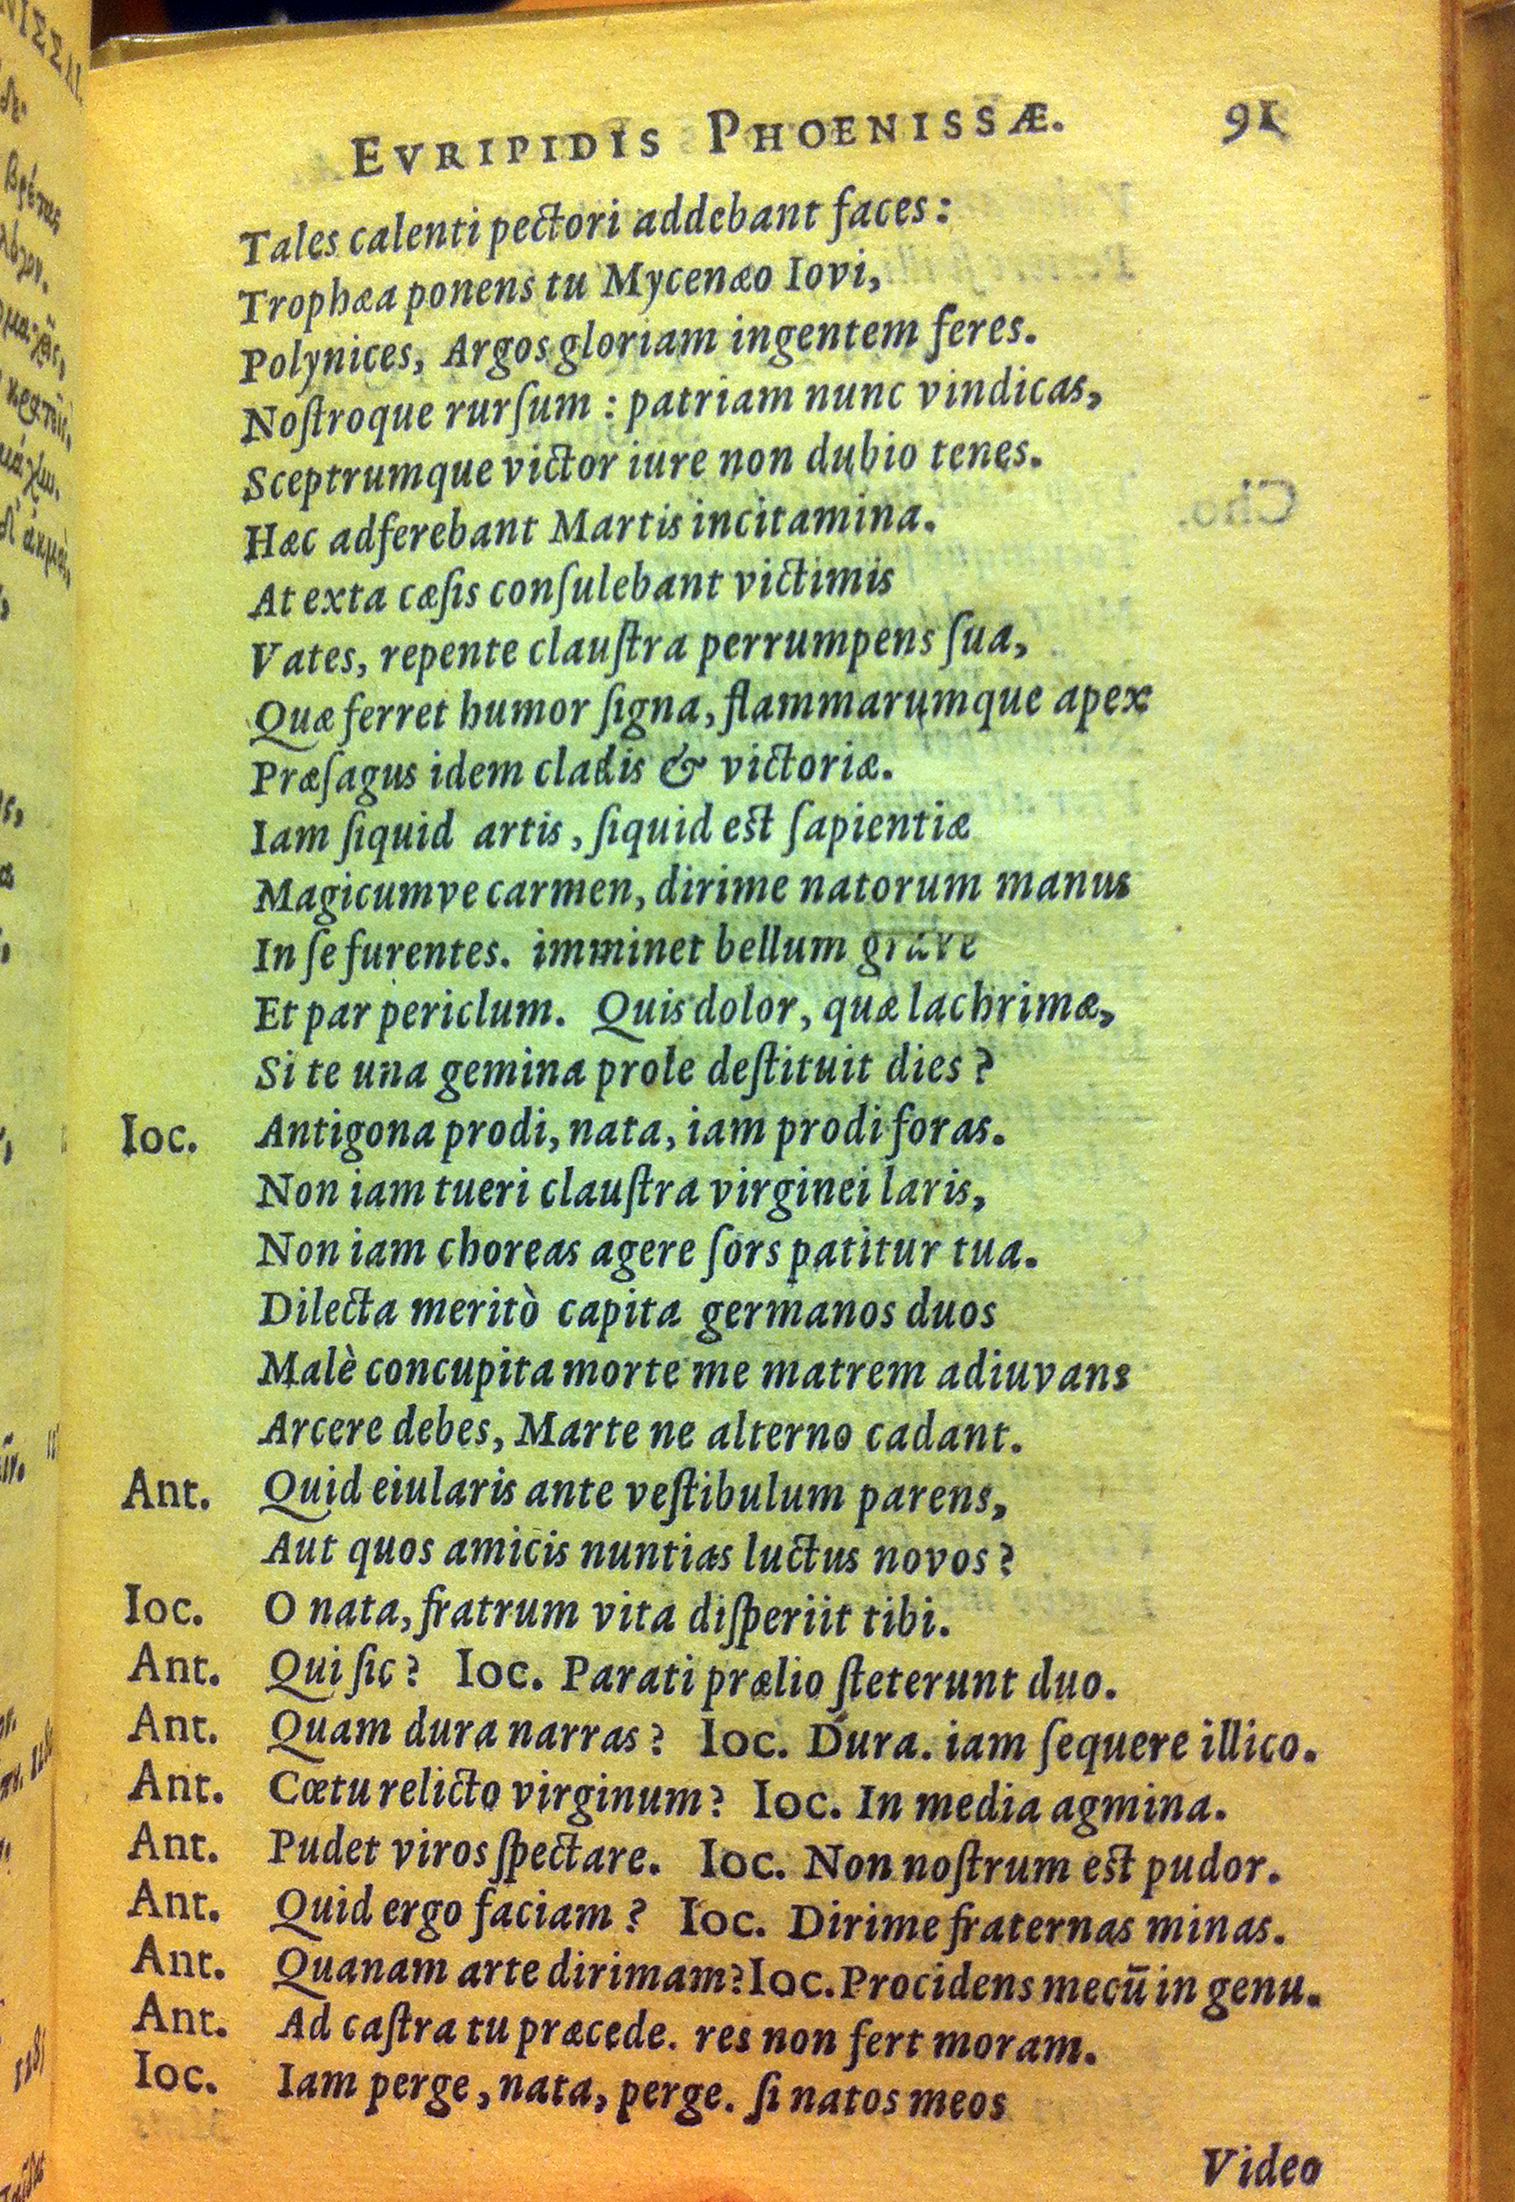 EVRIPIDIS PHOENISSÆ. 91
Tales calenti pectori addebant faces:
Trophæa ponens tu Mycenæo Iovi,
Polynices, Argos gloriam ingentem feres.
Noſtroque rurſum: patriam nunc vindicas,
Sceptrumque victor iure non dubio tenes.
Hæc adferebant Martis incitamina.
At exta cæſis conſulebant victimis
Vates, repente clauſtra perrumpens ſua,
Quæ ferret humor ſigna, flammarumque apex
Præſagus idem cladis & victoriæ.
Iam ſiquid artis, ſiquid est ſapientiæ
Magicumve carmen, dirime natorum manus
In ſe furentes. imminet bellum grave
Et par periclum. Quis dolor, quæ lachrimæ,
Si te una gemina prole deſtituit dies?
Ioc. Antigona prodi, nata, iam prodi foras.
Non iam tueri clauſtra virginei laris,
Non iam choreas agere ſors patitur tua.
Dilecta meritò capita germanos duos
Malè concupita morte me matrem adiuvans
Arcere debes, Marte ne alterno cadant.
Ant. Quid eiularis ante veſtibulum parens,
Aut quos amicis nuntias luctus novos?
Ioc. O nata, fratrum vita diſperiit tibi.
Ant. Qui ſic? Ioc. Parati prælio ſteterunt duo.
Ant. Quam dura narras? Ioc. Dura. iam ſequere illico.
Ant. Cœtu relicto virginum? Ioc. In media agmina.
Ant. Pudet viros ſpectare. Ioc. Non noſtrum est pudor.
Ant. Quid ergo faciam? Ioc. Dirime fraternas minas.
Ant. Quanam arte dirimam? Ioc. Procidens mecū in genu.
Ant. Ad caſtra tu præcede. res non fert moram.
Ioc. Iam perge, nata, perge. ſi natos meos
Video